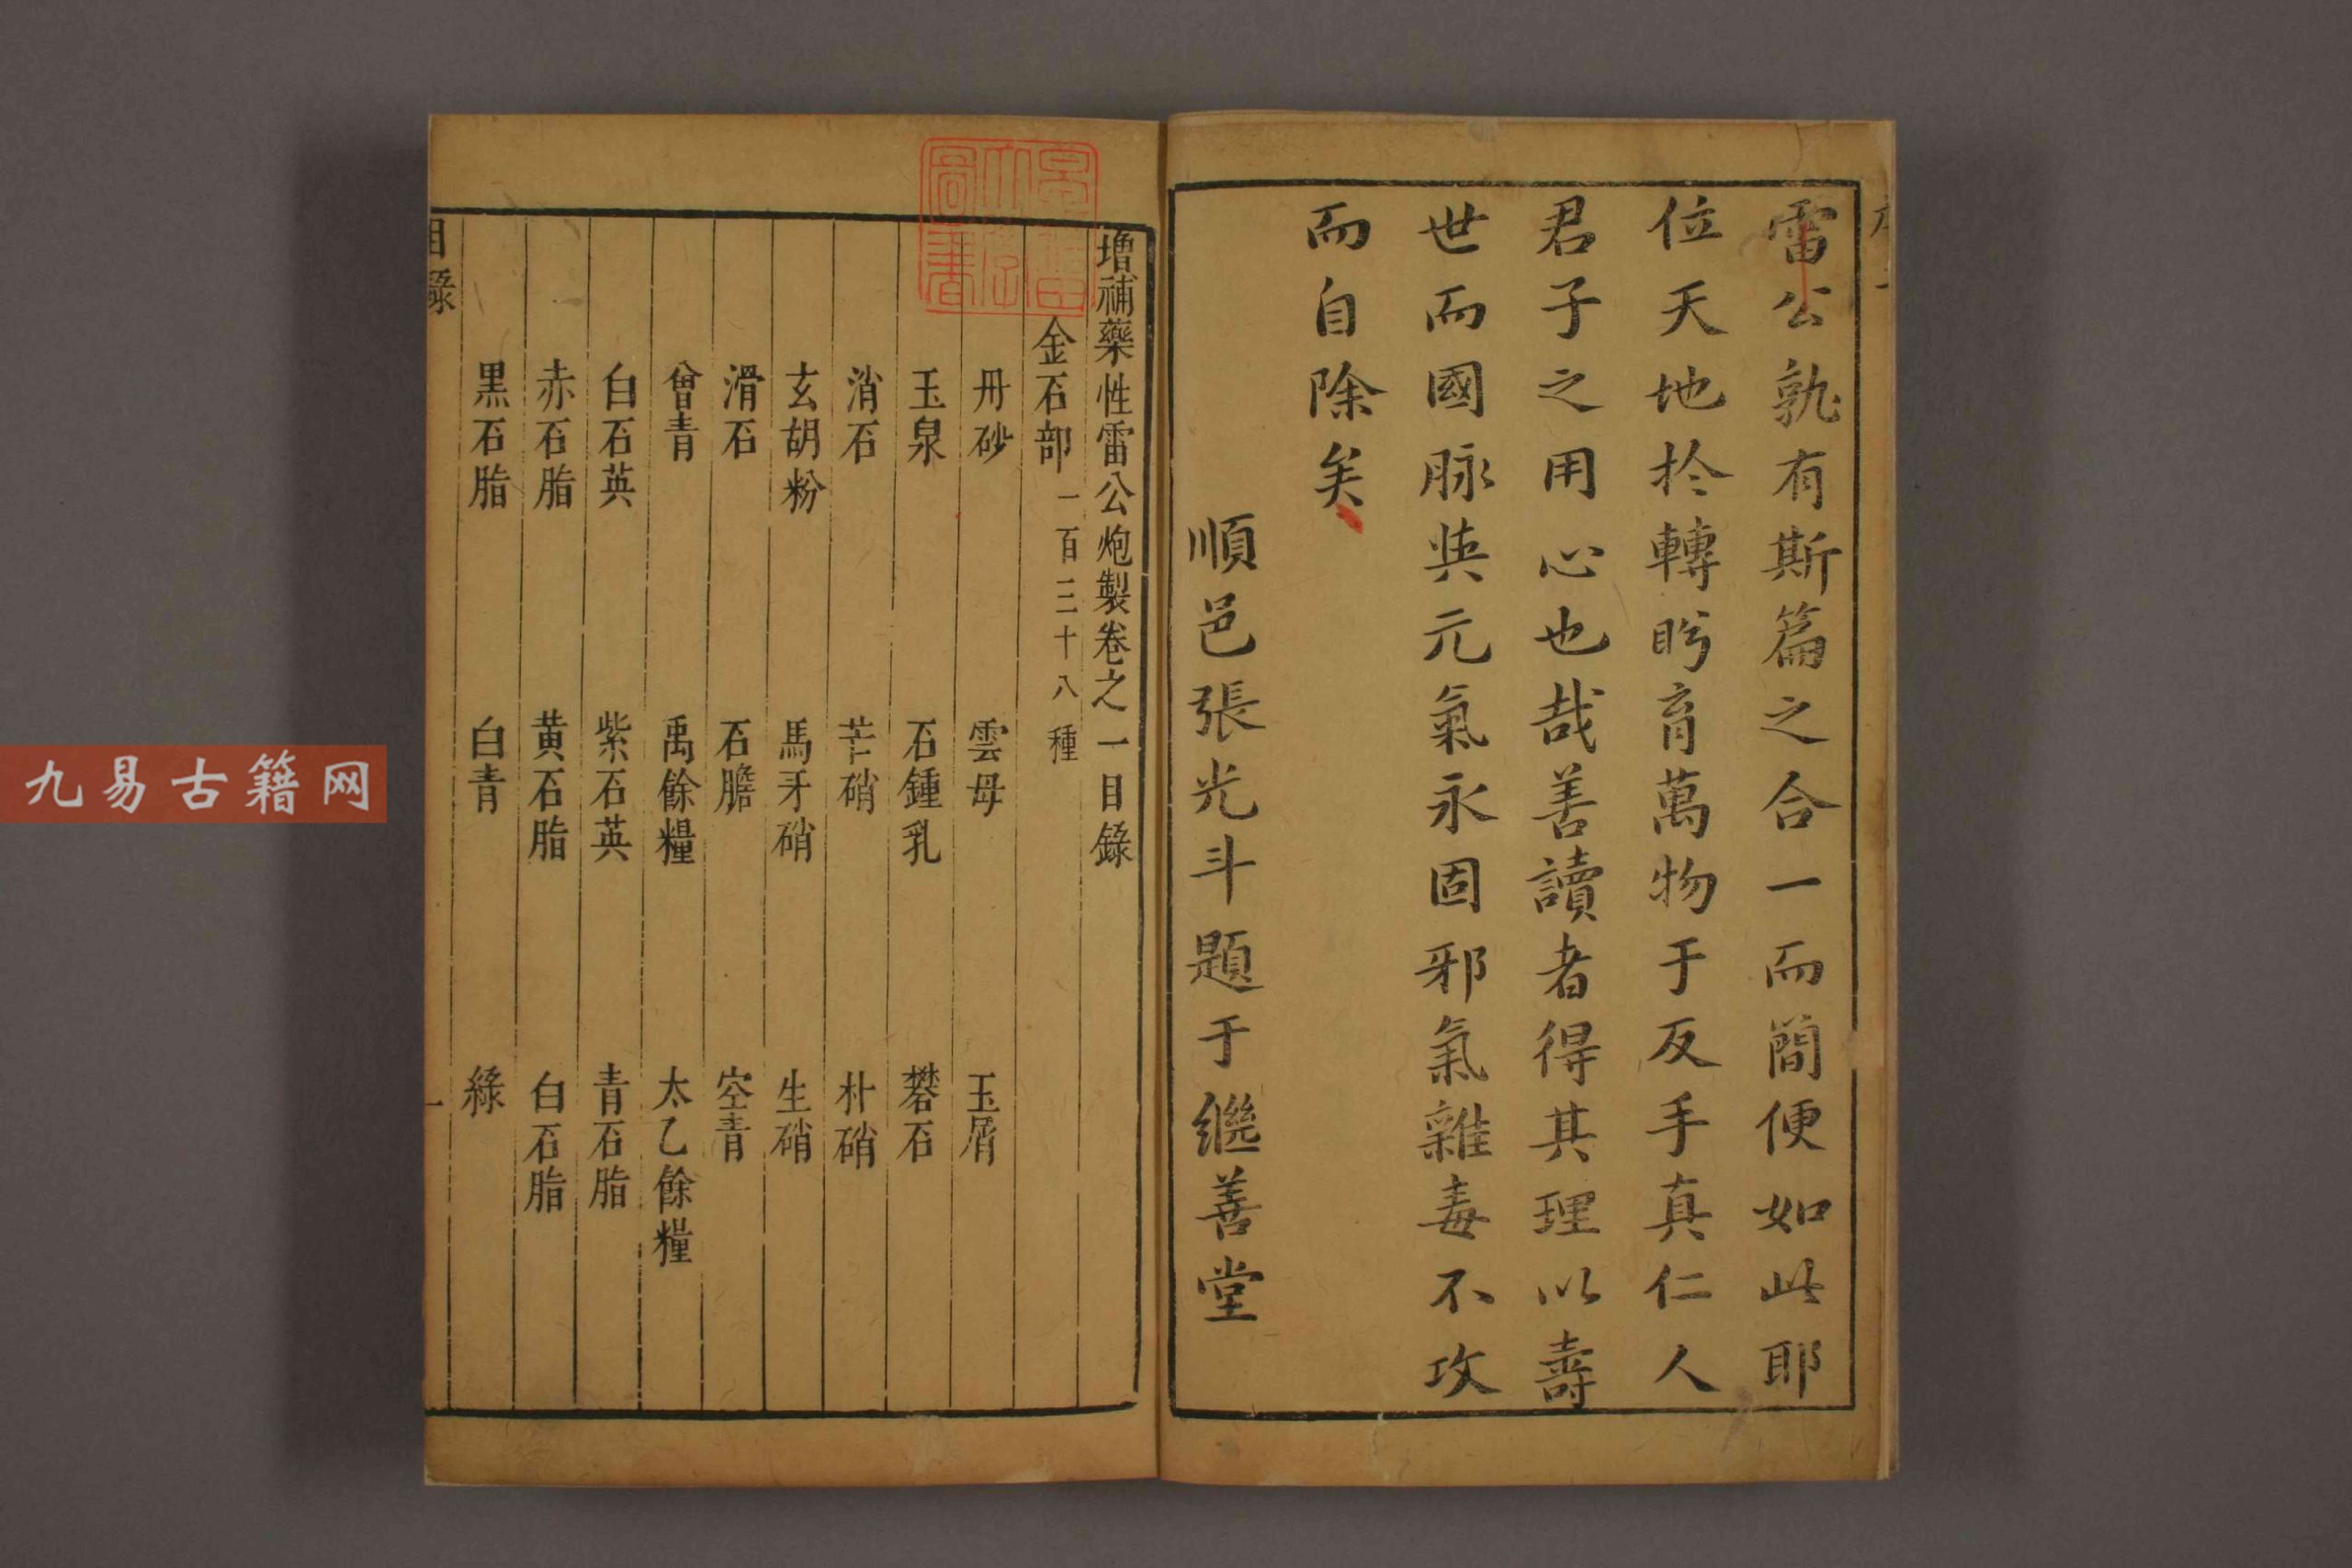 雷公孰有斯篇之合一而簡便如此耶
位天地扵轉盻育萬物于反手真仁人
君子之用心也哉善讀者得其理以壽
世而國脉與元氣永固邪氣雜毒不攻
而自除矣
順邑張光斗題于繼善堂
增補藥性雷公炮製卷之一目錄
金石部 一百三十八種
丹砂 雲母 玉屑
玉泉 石鍾乳 礬石
消石 芒硝 朴硝
玄胡粉 馬牙硝 生硝
滑石 石膽 空青
曾青 禹餘糧 太乙餘糧
白石英 紫石英 青石脂
赤石脂 黃石脂 白石脂
黑石脂 白青 綠
目錄 一
九易古籍网